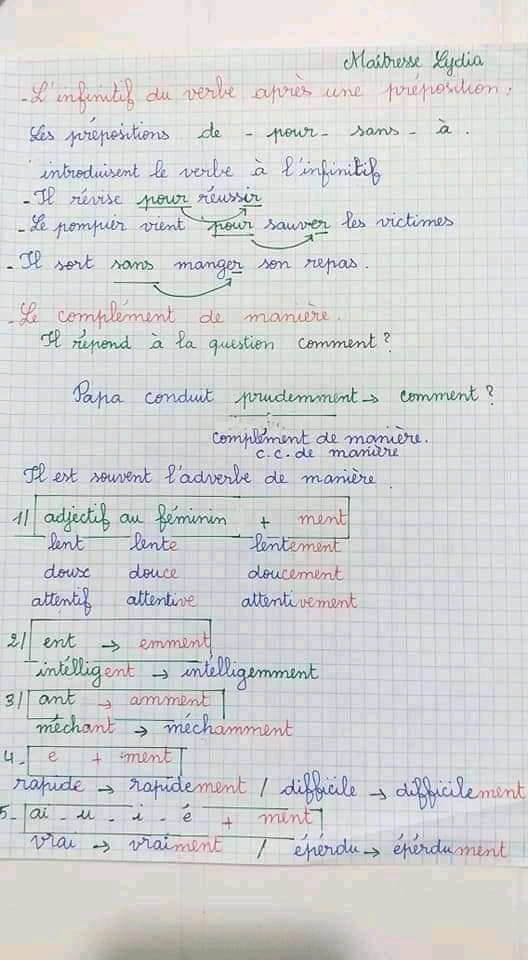 Maîtresse Lydia
- L'infinitif du verbe après une préposition.
Les prépositions de - pour - sans - à.
introduisent le verbe à l'infinitif
- Il révise pour réussir
- Le pompier vient pour sauver les victimes
- Il sort sans manger son repas.
- Le complément de manière.
Il répond à la question comment ?
Papa conduit prudemment → comment ?
complément de manière.
c.c. de manière
Il est souvent l'adverbe de manière.
1/ adjectif au féminin + ment
lent lente lentement
doux douce doucement
attentif attentive attentivement
2/ ent → emment
intélligent → intélligemment
3/ ant → amment
méchant → méchamment
4- e + ment
rapide → rapidement / difficile → difficilement
5- ai - u - i - é + ment
vrai → vraiment / épérdu → épérdument